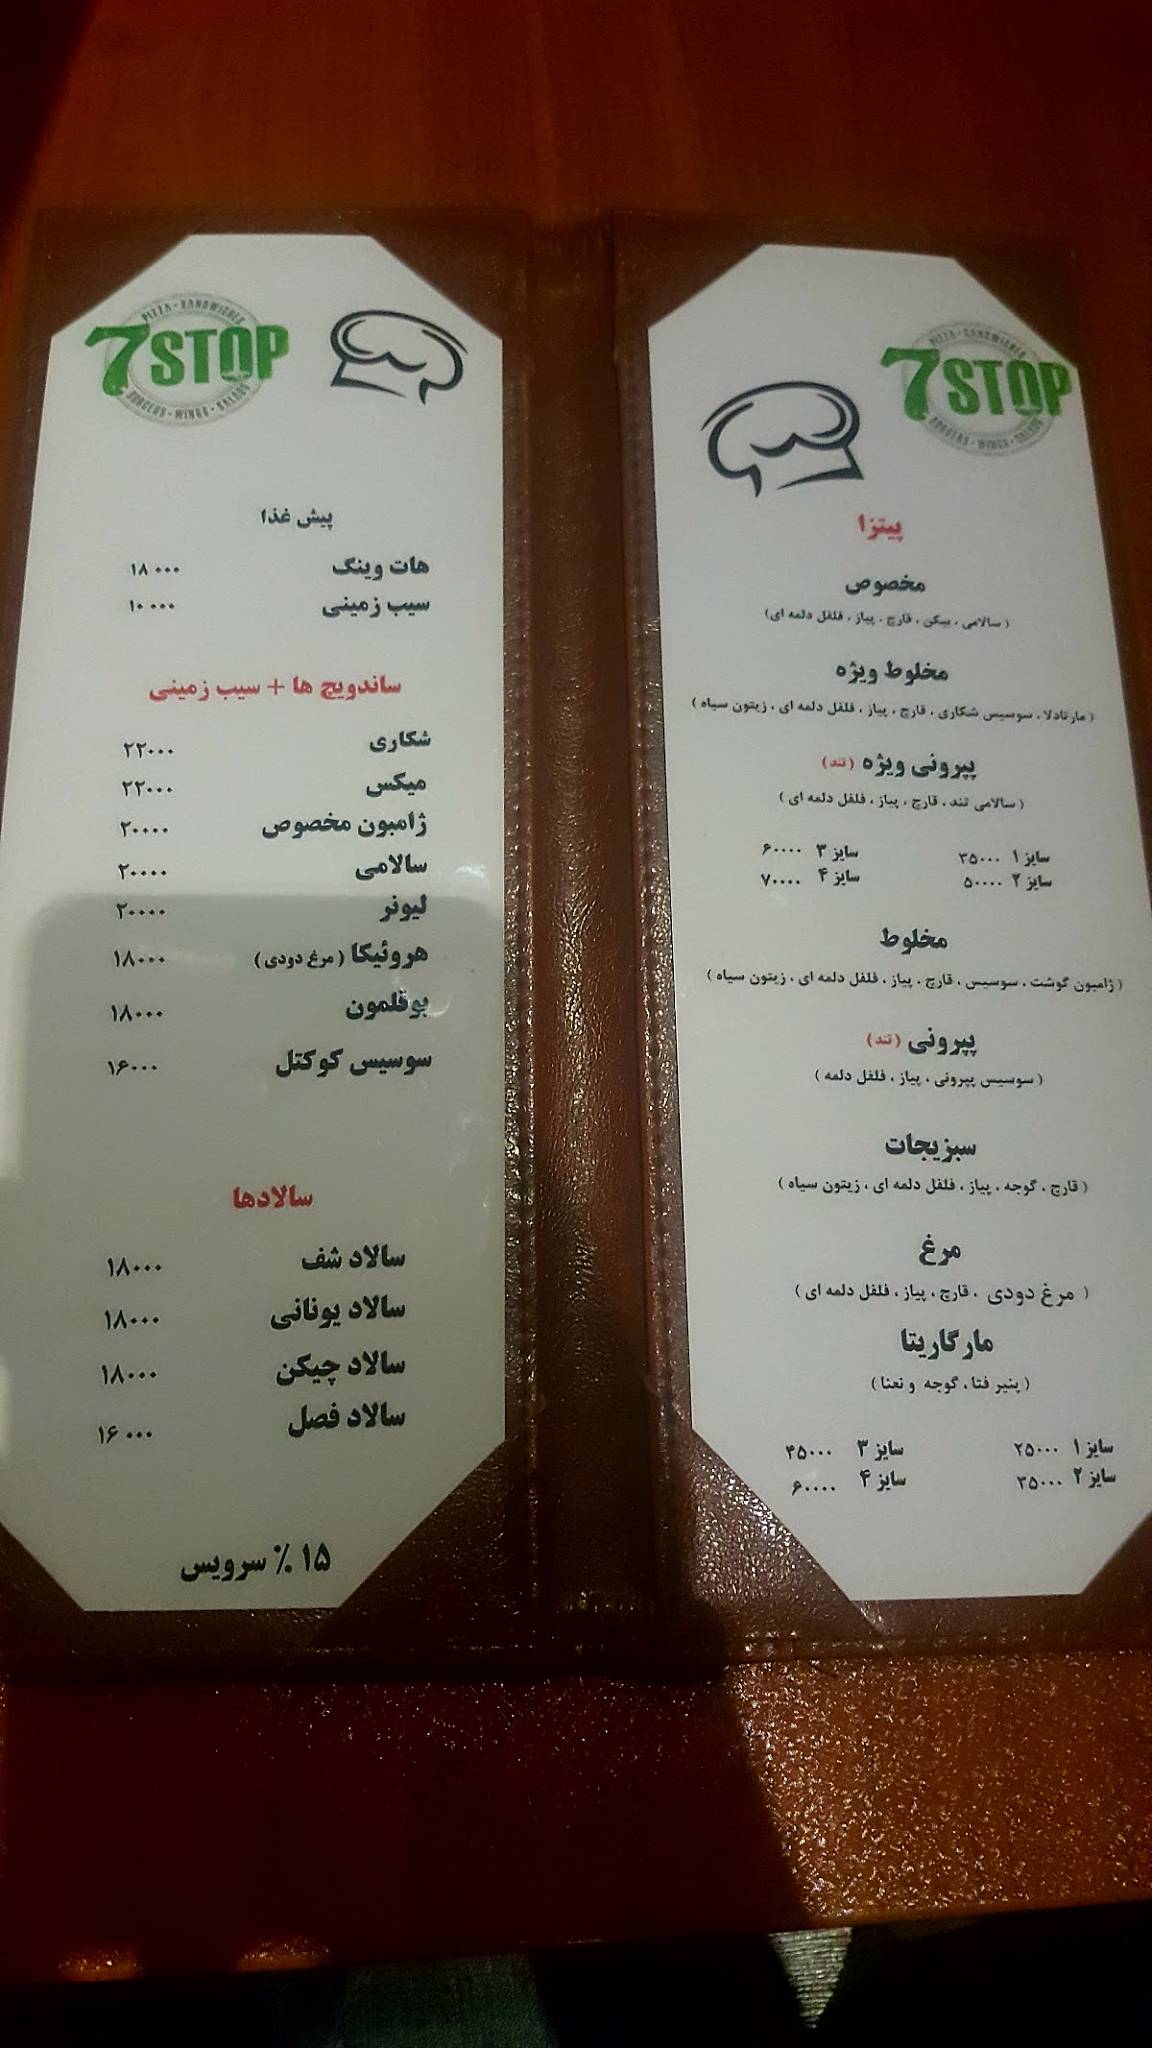 7STOP
PIZZA - SANDWICHES
BURGERS - WINGS - SALADS
پیش غذا
هات وینگ ۱۸۰۰۰
سیب زمینی ۱۰۰۰۰
ساندویچ ها + سیب زمینی
شکاری ۲۲۰۰۰
میکس ۲۲۰۰۰
ژامبون مخصوص ۲۰۰۰۰
سالامی ۲۰۰۰۰
لیونر ۲۰۰۰۰
هروئیکا (مرغ دودی) ۱۸۰۰۰
بوقلمون ۱۸۰۰۰
سوسیس کوکتل ۱۶۰۰۰
سالادها
سالاد شف ۱۸۰۰۰
سالاد یونانی ۱۸۰۰۰
سالاد چیکن ۱۸۰۰۰
سالاد فصل ۱۶۰۰۰
۱۵ ٪ سرویس
7STOP
PIZZA - SANDWICHES
BURGERS - WINGS - SALADS
پیتزا
مخصوص
( سالامی ، بیکن ، قارچ ، پیاز ، فلفل دلمه ای)
مخلوط ویژه
( مارتادلا ، سوسیس شکاری ، قارچ ، پیاز ، فلفل دلمه ای ، زیتون سیاه )
پپرونی ویژه (تند)
( سالامی تند ، قارچ ، پیاز ، فلفل دلمه ای )
سایز ۱ ۳۵۰۰۰ سایز ۳ ۶۰۰۰۰
سایز ۲ ۵۰۰۰۰ سایز ۴ ۷۰۰۰۰
مخلوط
( ژامبون گوشت ، سوسیس ، قارچ ، پیاز ، فلفل دلمه ای ، زیتون سیاه )
پپرونی (تند)
( سوسیس پپرونی ، پیاز ، فلفل دلمه )
سبزیجات
( قارچ ، گوجه ، پیاز ، فلفل دلمه ای ، زیتون سیاه )
مرغ
( مرغ دودی ، قارچ ، پیاز ، فلفل دلمه ای )
مارگاریتا
( پنیر فتا ، گوجه و نعنا )
سایز ۱ ۲۵۰۰۰ سایز ۳ ۴۵۰۰۰
سایز ۲ ۳۵۰۰۰ سایز ۴ ۶۰۰۰۰